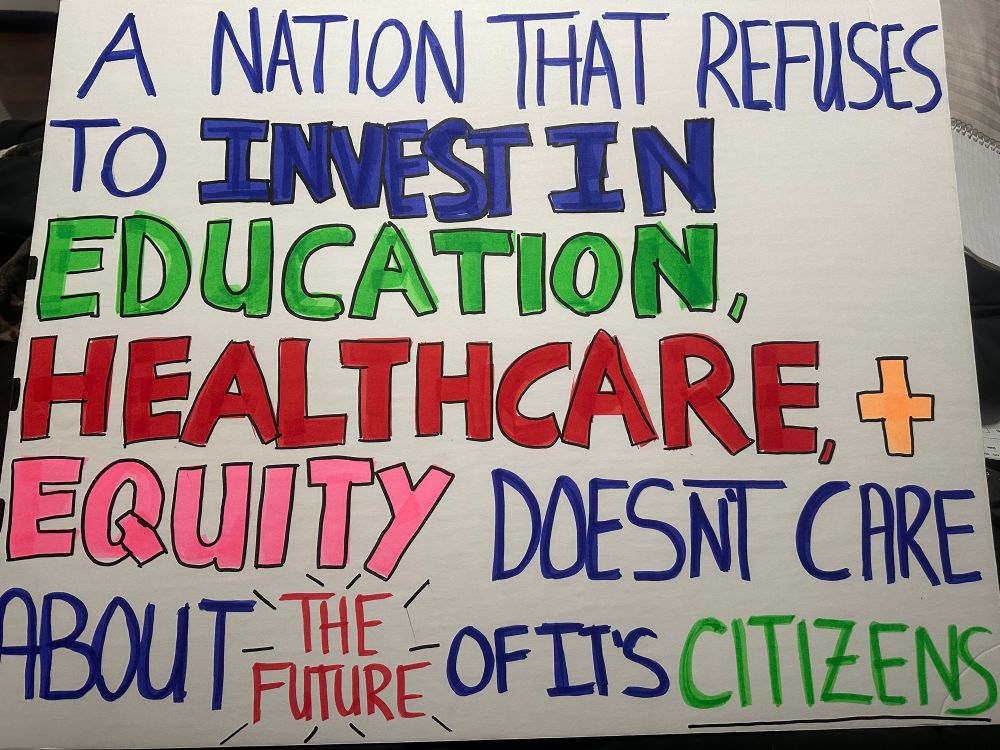 A NATION THAT REFUSES
TO INVEST IN
EDUCATION,
HEALTHCARE, +
EQUITY DOESN'T CARE
ABOUT THE FUTURE OF IT'S CITIZENS